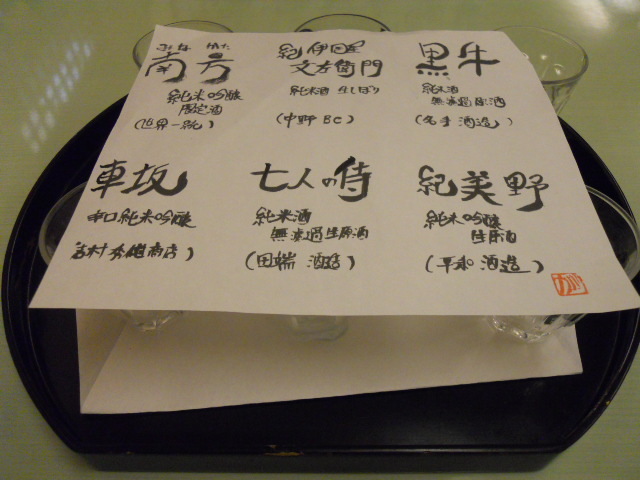 みなかた
南方
純米吟醸
限定酒
(世界一統)
紀伊国屋
文左衛門
純米酒 生しぼり
(中野BC)
黒牛
純米酒
無濾過原酒
(名手酒造)
車坂
辛口純米吟醸
吉村秀雄商店)
七人の侍
純米酒
無濾過生原酒
(田端酒造)
紀美野
純米吟醸
生原酒
(平和酒造)